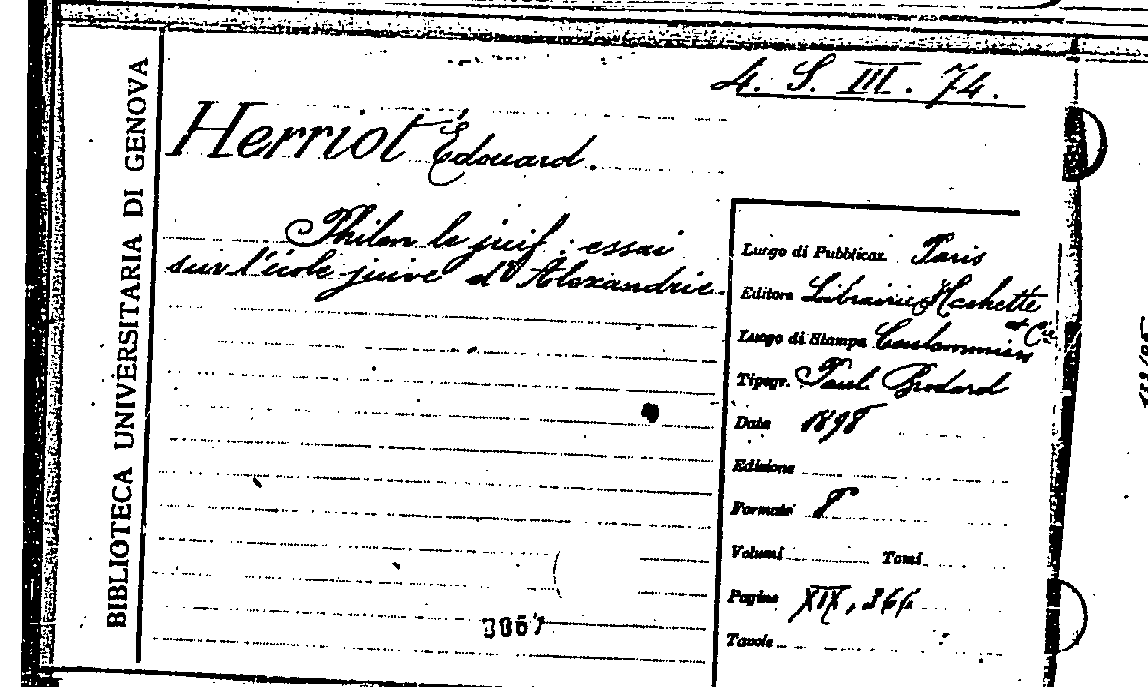 4. S. III. 74.
BIBLIOTECA UNIVERSITARIA DI GENOVA
Herriot Édouard.
Philon le juif : essai
sur l'école juive d'Alexandrie.
Luogo di Pubblicaz. Paris
Editore Librairie Hachette
et Cie
Luogo di Stampa Coulommiers
Tipogr. Paul Brodard
Data 1898
Edizione
Formato 8
Volumi Tomi
Pagine XIX, 366
Tavole